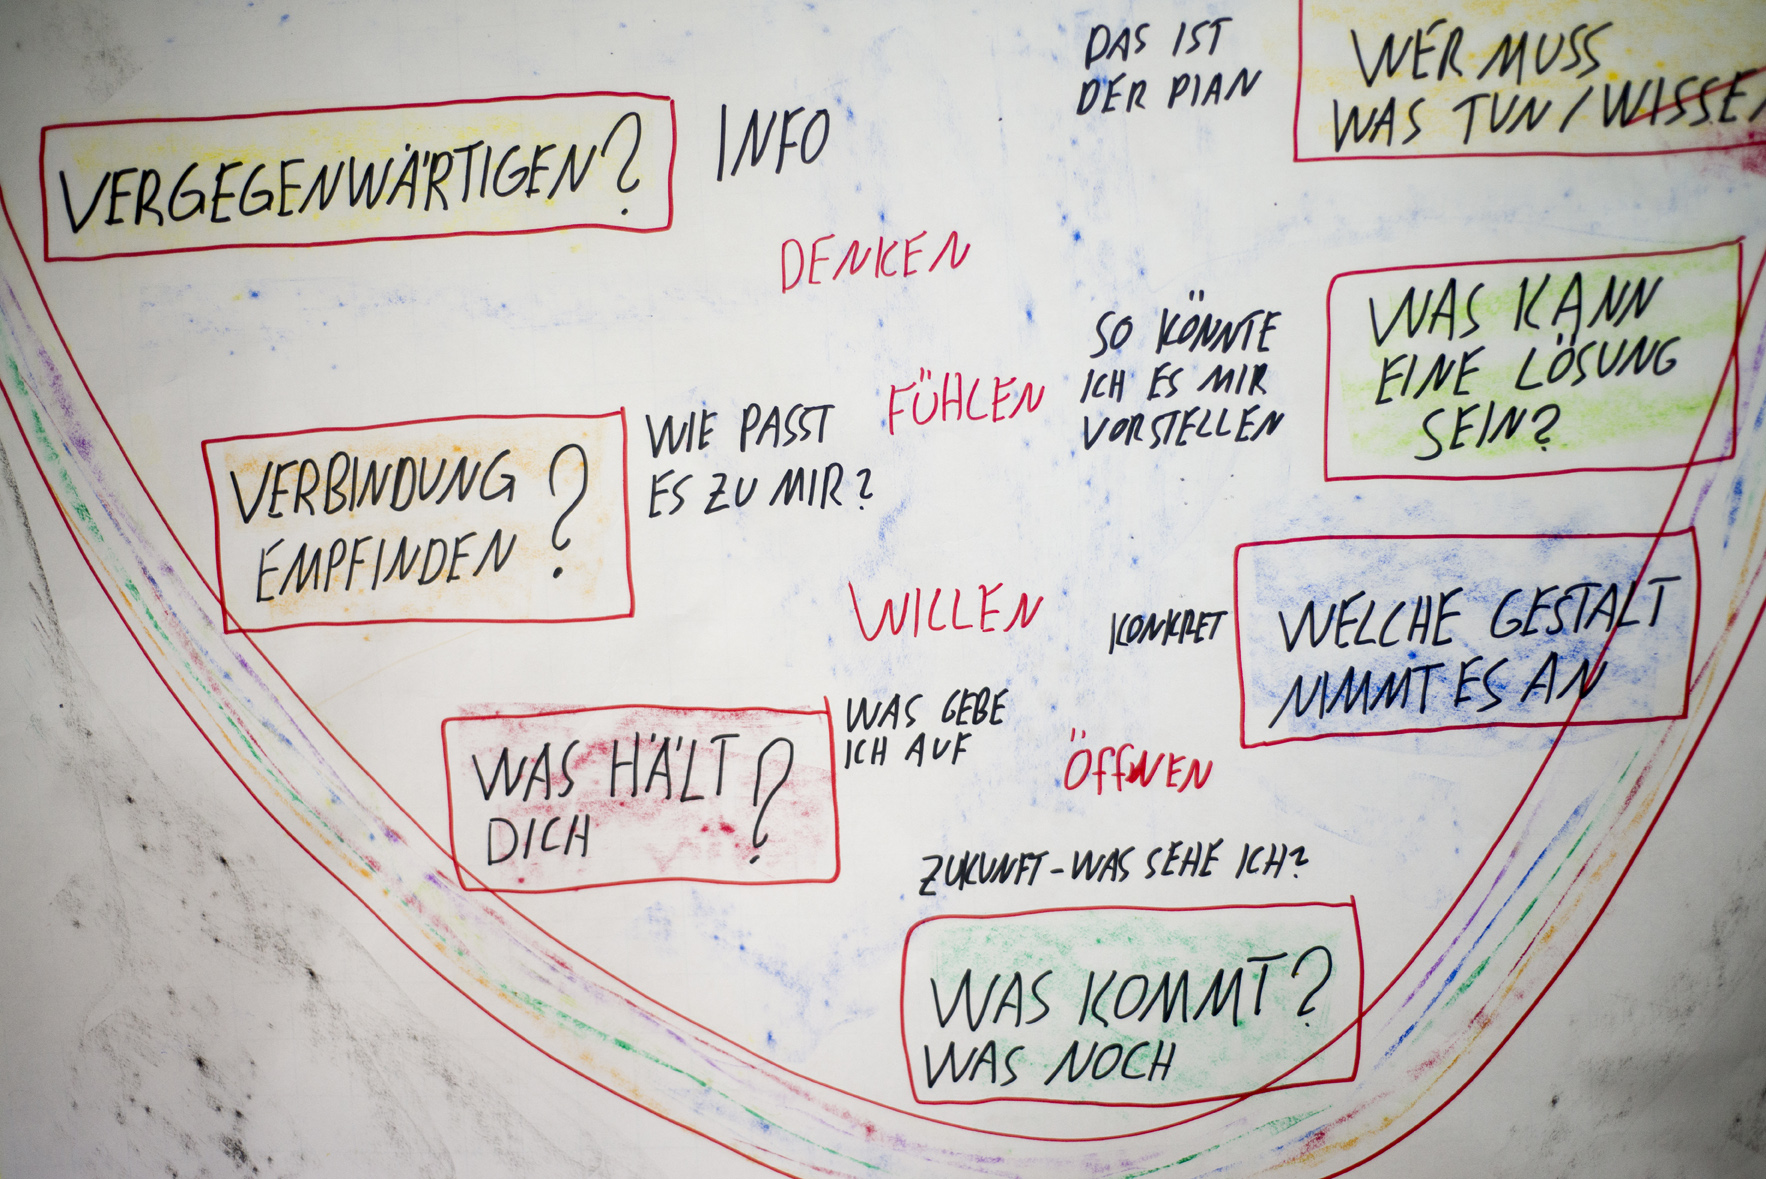 DAS IST
DER PLAN
WER MUSS
WAS TUN / WISSE
VERGEGENWÄRTIGEN?
INFO
DENKEN
SO KÖNNTE
ICH ES MIR
VORSTELLEN
WAS KANN
EINE LÖSUNG
SEIN?
FÜHLEN
WIE PASST
ES ZU MIR?
VERBINDUNG
EMPFINDEN?
WILLEN
KONKRET
WELCHE GESTALT
NIMMT ES AN
WAS HÄLT?
DICH
WAS GEBE
ICH AUF
ÖFFNEN
ZUKUNFT - WAS SEHE ICH?
WAS KOMMT?
WAS NOCH